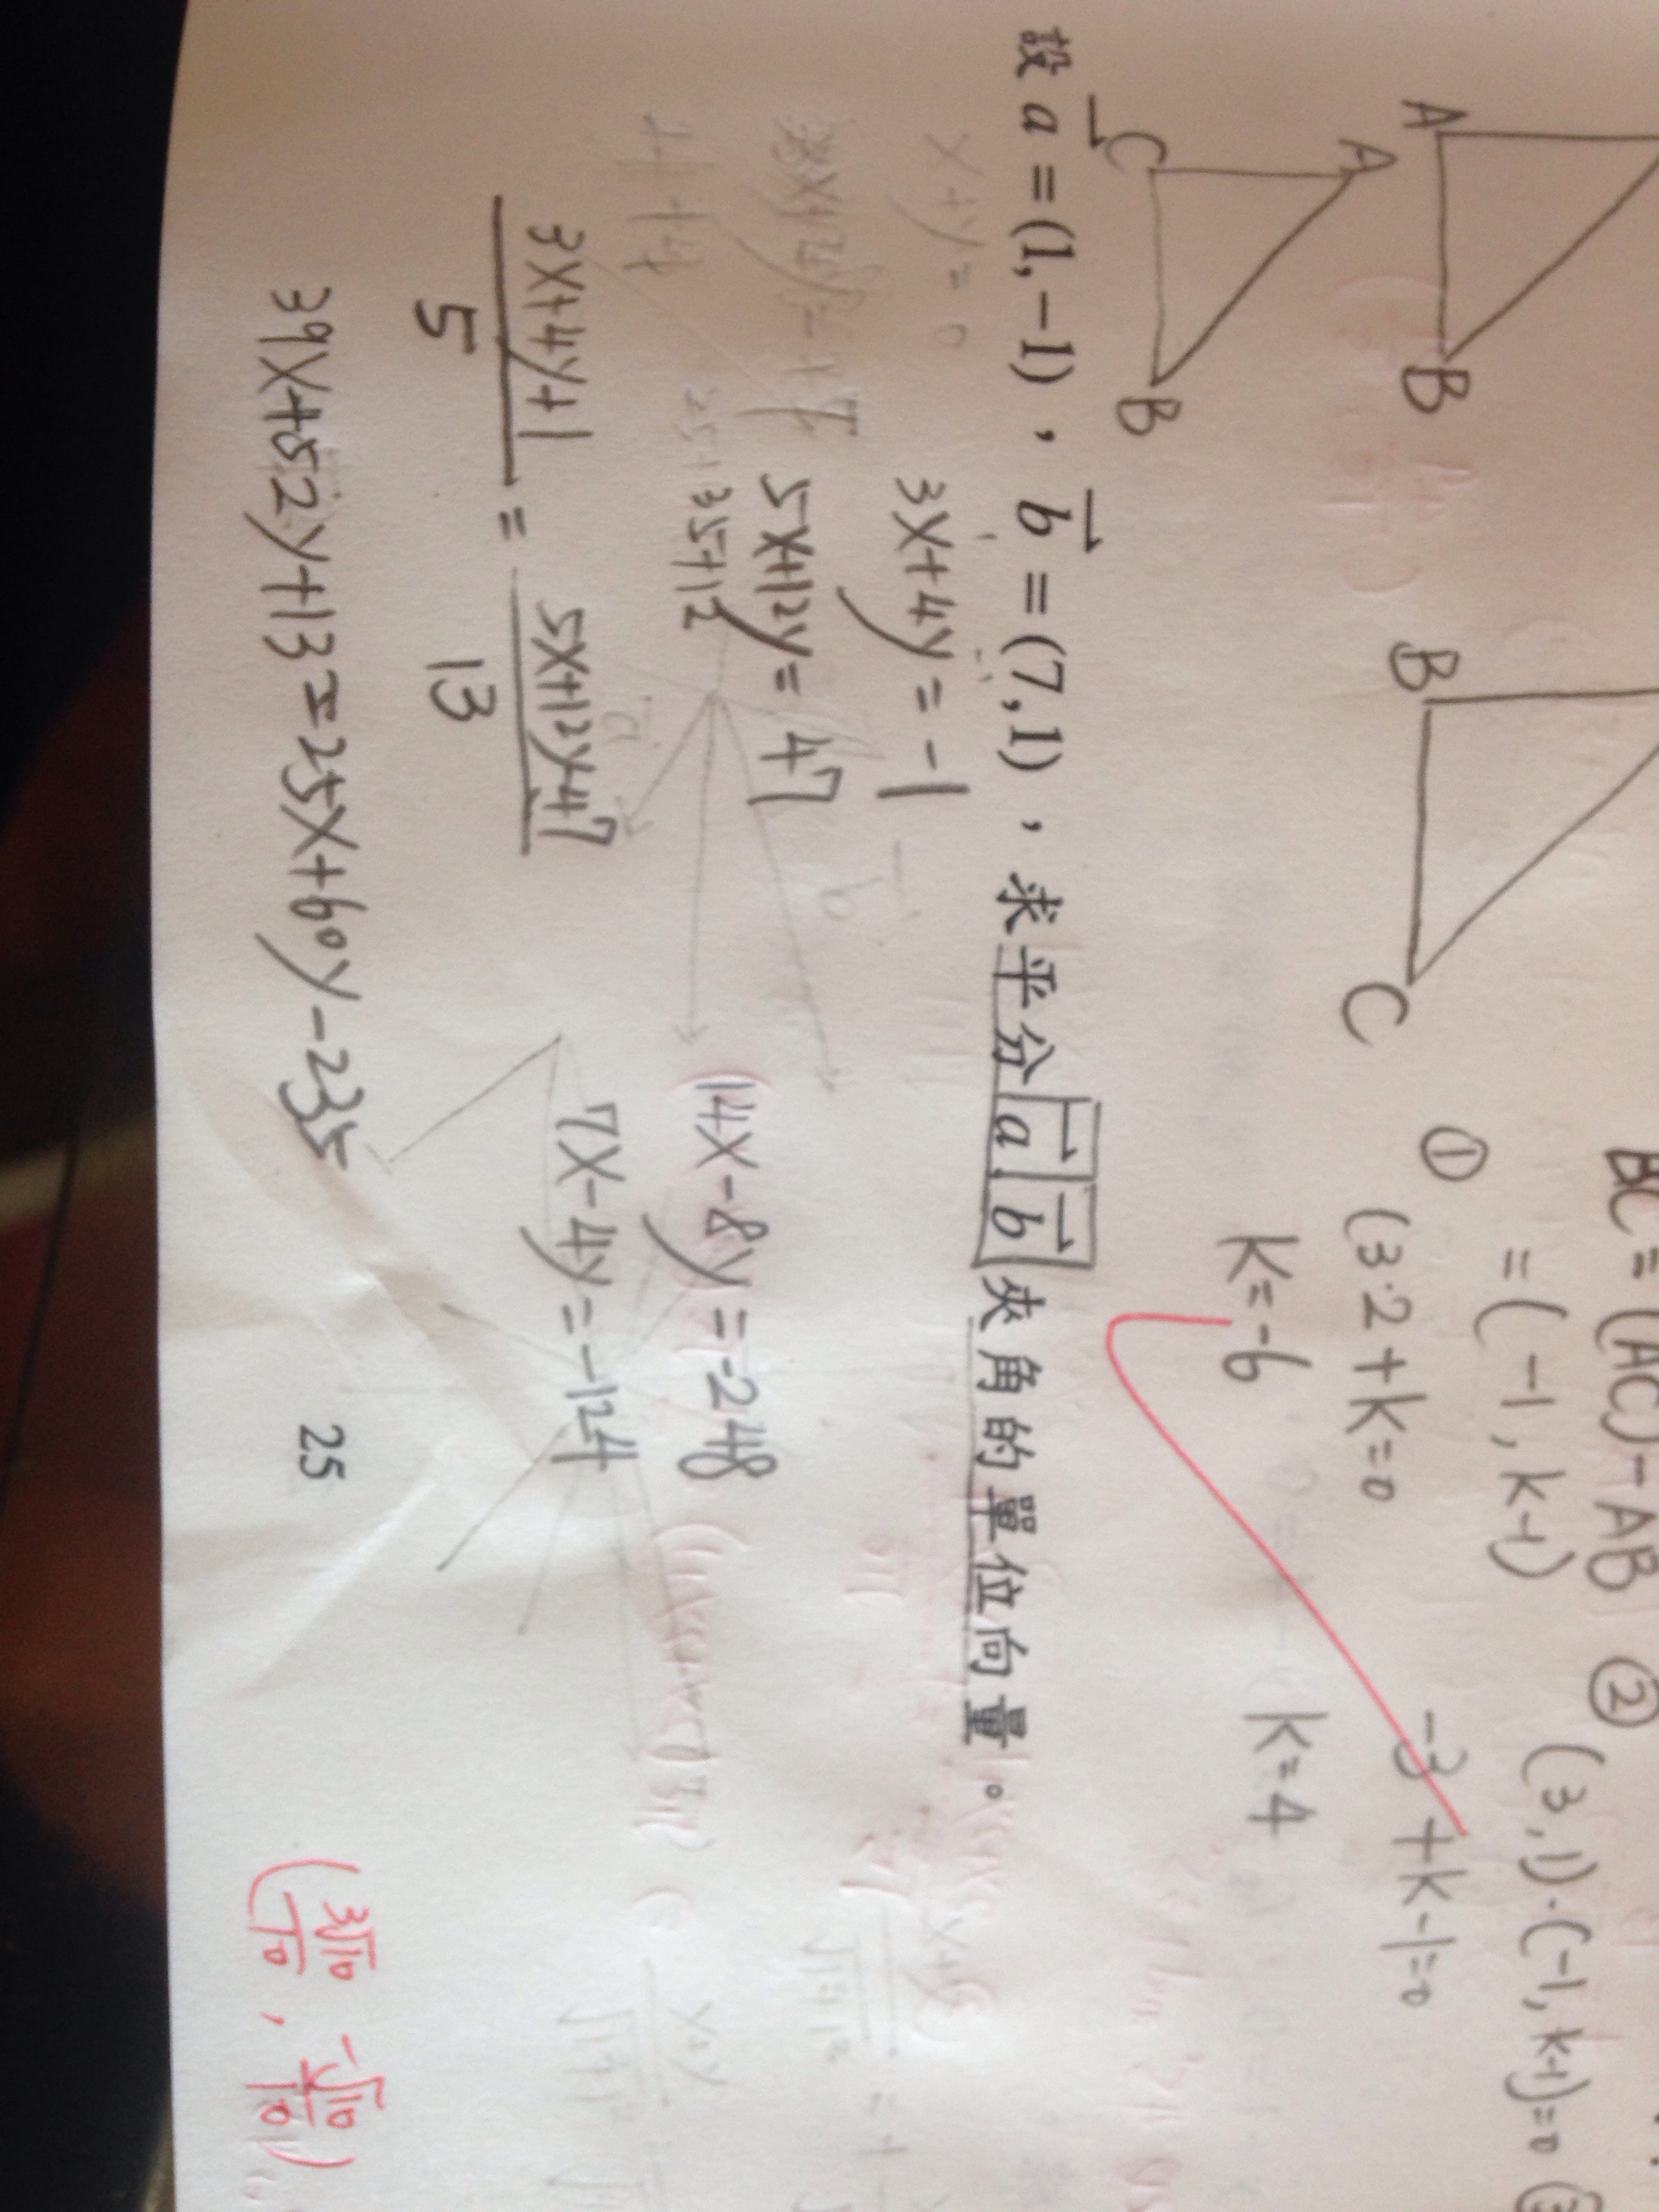 A
B
B
C
BC = (AC) - AB
= (-1, k-1)
①
(3·2+k=0
k=-6
②
(3,1)·(-1,k-1)=0
-3+k-1=0
k=4
A
C
B
設 a = (1,-1)，b = (7,1)，求平分 a、b 夾角的單位向量。
x+y=0
3x+4y=-1
5x+12y=47
a
b
14x-8y=-248
7x-4y=-124
3x+4y+1 / 5 = 5x+12y-47 / 13
39x+52y+13=25x+60y-235
25
(3√10/10, -√10/10)